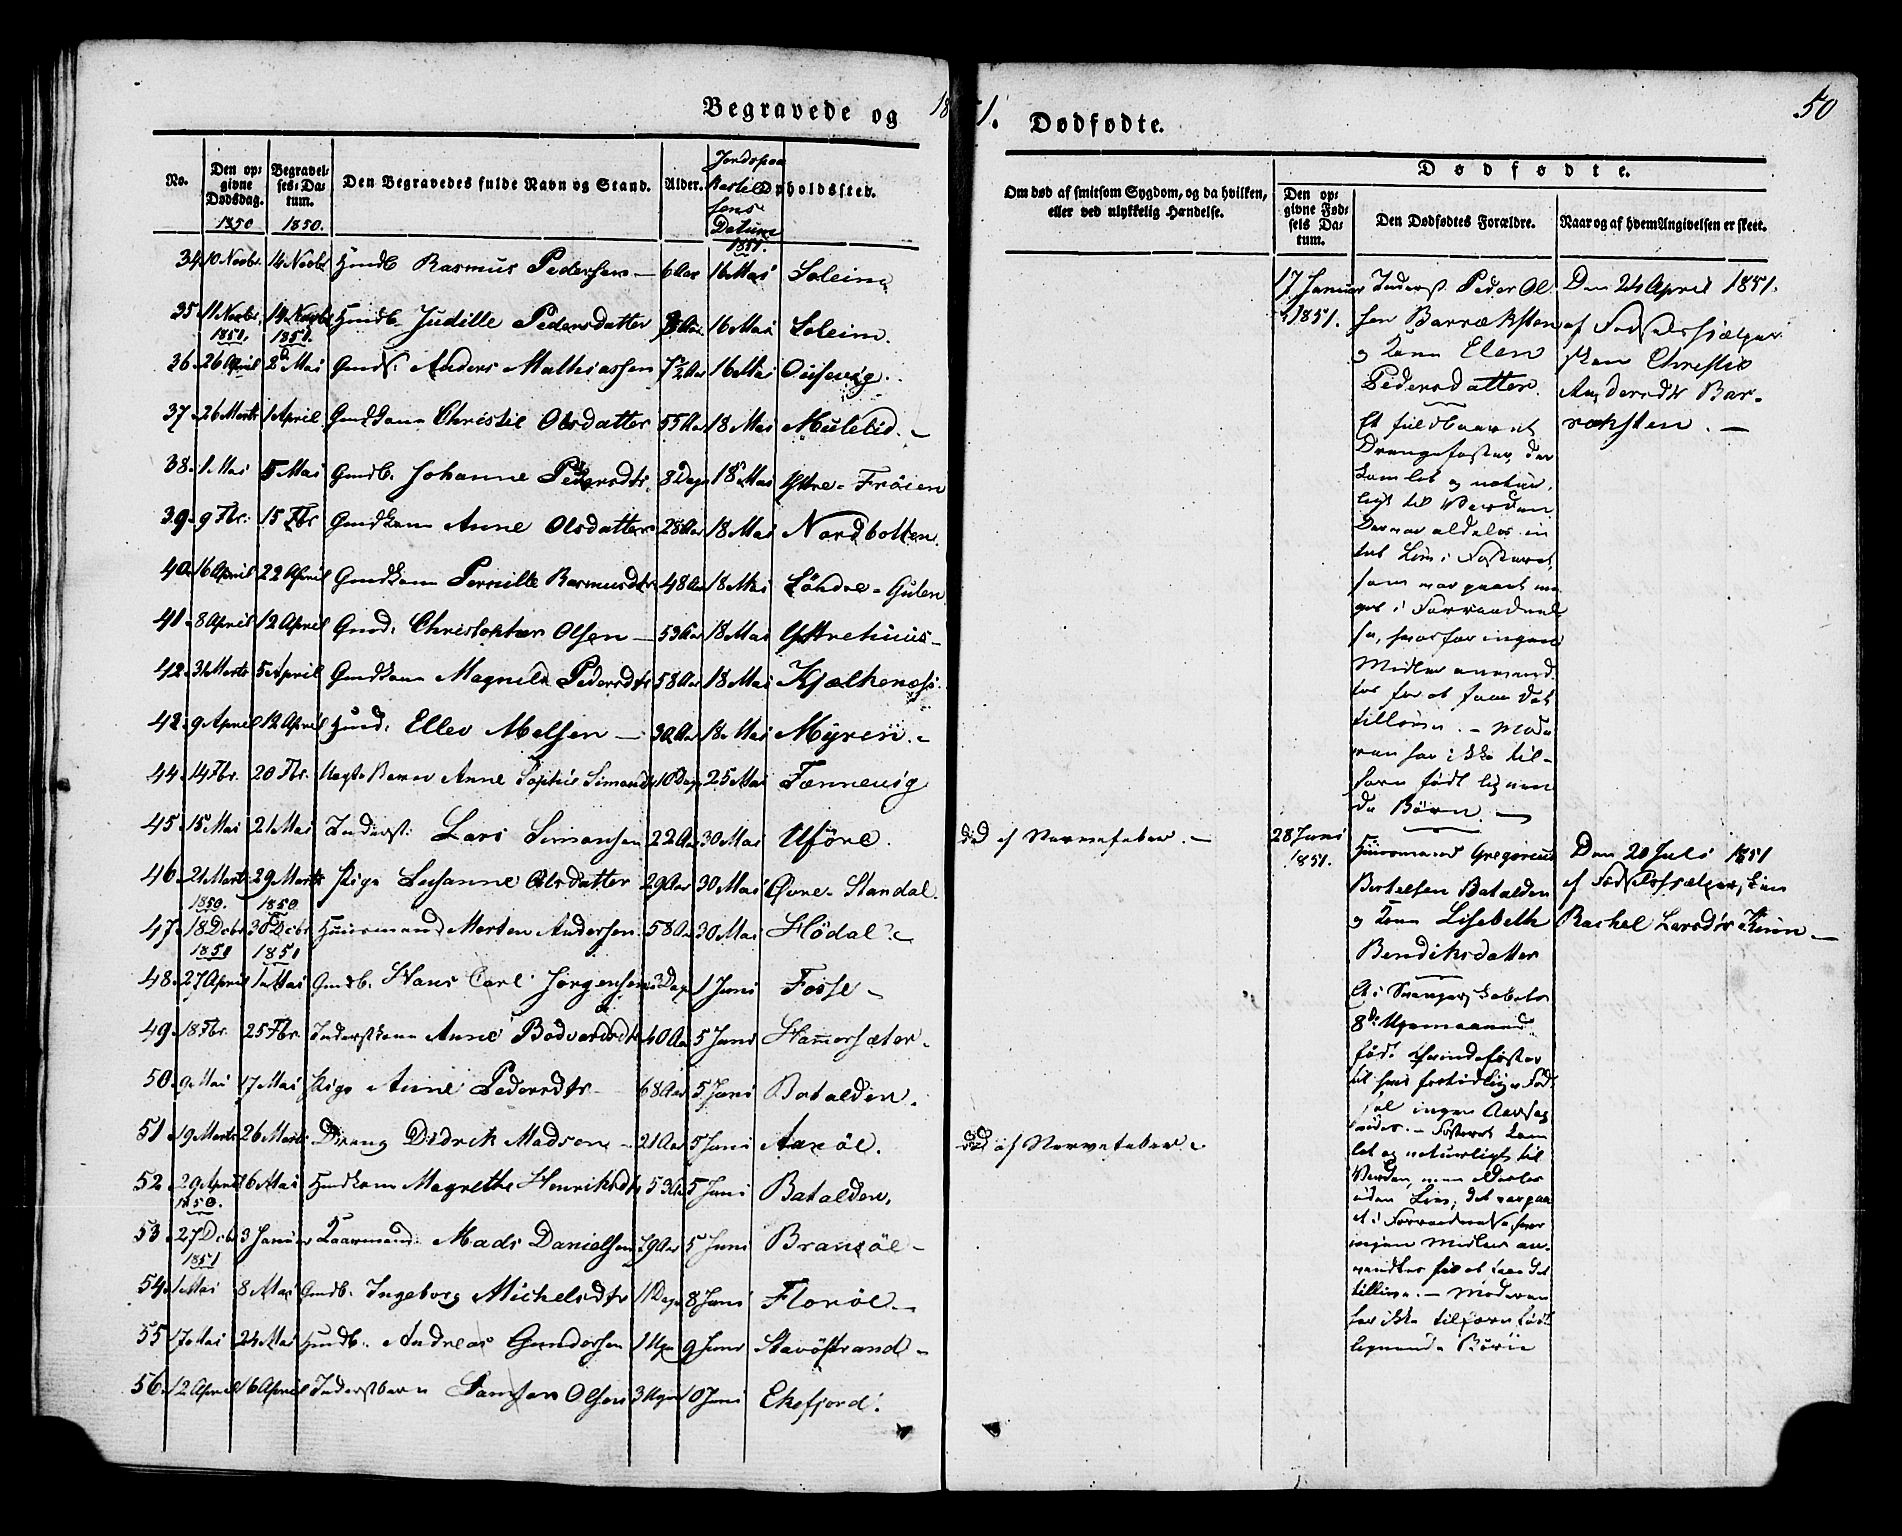 Begravede og 1851. Dødfødte. 50
No. Den opgivne Dødsdag. 1850 Begravelses-Datum. 1850. Den Begravedes fulde Navn og Stand. Alder. Jordspaakastelsens Datum 1851. Opholdssted.
34. 10 Novbr. 14 Novbr. Huusb. Rasmus Pedersen — 6 Aar 16 Mai Soleim
35. 11 Novbr. 14 Novbr. Huusb. Judille Pedersdatter Aar 16 Mai Soleim.
1851. 1851.
36. 26 April 2 Mai Gmd. Anders Mathiassen 72 Aar 16 Mai
37. 26 Marts 1 April Gmdkone Christie Olsdatter 55 Aar 18 Mai Mulelid. —
38. 1 Mai 5 Mai Gmdb. Johanne Pedersdtr. 8 Dage 18 Mai Yttre-Frøien
39. 9 Fbr. 15 Fbr Gmdkone Anne Olsdatter 28 Aar 18 Mai Nordbotten.
40. 16 April 22 April Gmdkone Pernille Rasmusdtr 48 Aar 18 Mai Söndre-Gulen
41. 8 April 12 April Gmd. Christopher Olsen — 53 Aar 18 Mai Yttrehuus-
42. 31 Marts 5 April Gmdkone Magnilda Pedersdtr 58 Aar 18 Mai Kjelkenæs.
42. 9 April 12 April Huusm. Ellev Melsen — 30 Aar 18 Mai Myren. —
44. 14 Fbr. 20 Fbr. Uægte Barn Anne Sophie Simonsdtr 10 Dage 25 Mai Fænnevig
45. 15 Mai 21 Mai Inderst: Lars Simonsen 22 Aar 30 Mai Uföre.
46. 21 Marts 29 Marts Pige Lusanne Olsdatter 29 Aar 30 Mai Øvre-Standal.
1850. 1850
47. 18 Dcbr 30 Dcbr Huusmand Morten Andersen 58 Aar 30 Mai Hödal. —
1851 1851
48. 27 April 1 Mai Gmdb. Hans Carl Jörgensen 3 Dage 1 Juni Fosse —
49. 18 Fbr. 25 Fbr. Inderstkone Anne Bodvarsdtr 40 Aar 5 Juni Hammersæter.
50. 9 Mai 17 Mai Pige Anne Pedersdtr — 68 Aar 5 Juni Batalden.
51. 19 Marts 26 Marts Dreng Didrik Madsen — 21 Aar 5 Juni Aaröe.
52. 29 April 6 Mai Huuskone Magrethe Henriksdtr 53 Aar 5 Juni Batalden.
1850.
53. 27 Dcbr 3 Januar Kaarmand. Mads Danielsen 79 Aar 5 Juni Bransöe —
1851
54. 1 Mai 8 Mai Gmdb. Ingeborg Michelsdtr 11 Dage 8 Juni Floröe. —
55. 17 Mai 24 Mai Huusb. Andreas Gundersen 1 Uge 9 Juni Stavöstrand —
56. 12 April 16 April Inderstbarn Olsen 3 Uger 10 Juni Ekefjord.
Om død af smitsom Sygdom, og da hvilken, eller ved ulykkelig Hændelse.
død af Nervefeber. —
død af Nervefeber. —
Dødfødte.
Den opgivne Fødsels Datum. Den Dødfødtes Forældre. Naar og af hvem Angivelsen er skeet.
17 Januar
1851.
Inderst. Peder Ol-
sen Barræksten
og Kone Elen
Pedersdatter.
Et fuldbaaret
Drengefoster, der
kom let og natur-
ligt til Verden
Der var aldeles in-
tet Liv i Fosteret,
som var gaaet no-
get i Forraadnel-
se, hvorfor ingen
Midler anvend-
tes for at faae det
tillive. — Mode-
ren har ikke til-
forn født lignen-
de Børn. —
Den 24 April 1851.
af Fødselshjælper-
sken Christie
Andersdtr Bar-
ræksten. —
28 Juni
1851.
Huusmand Gregorius
Bertelsen Batalden
og Kone Lisebeth
Bendiksdatter
Et i Svangerskabets
8de Ugemaaned
født Qvindefoster
til hvis fortidlige Fød-
sel ingen Aarsag
vides. — Fosteret kom
let og naturligt til
Verden, men aldeles
uden Liv, det var gaa-
et i Forraadnelse, hvor
ingen Midler an-
vendtes for at faae det
tillive. — Moderen
har ikke tilforn født
lignende Børn
Den 20 Juli 1851
af Fødselshjælpersken
Rachel Larsdtr Kinn —